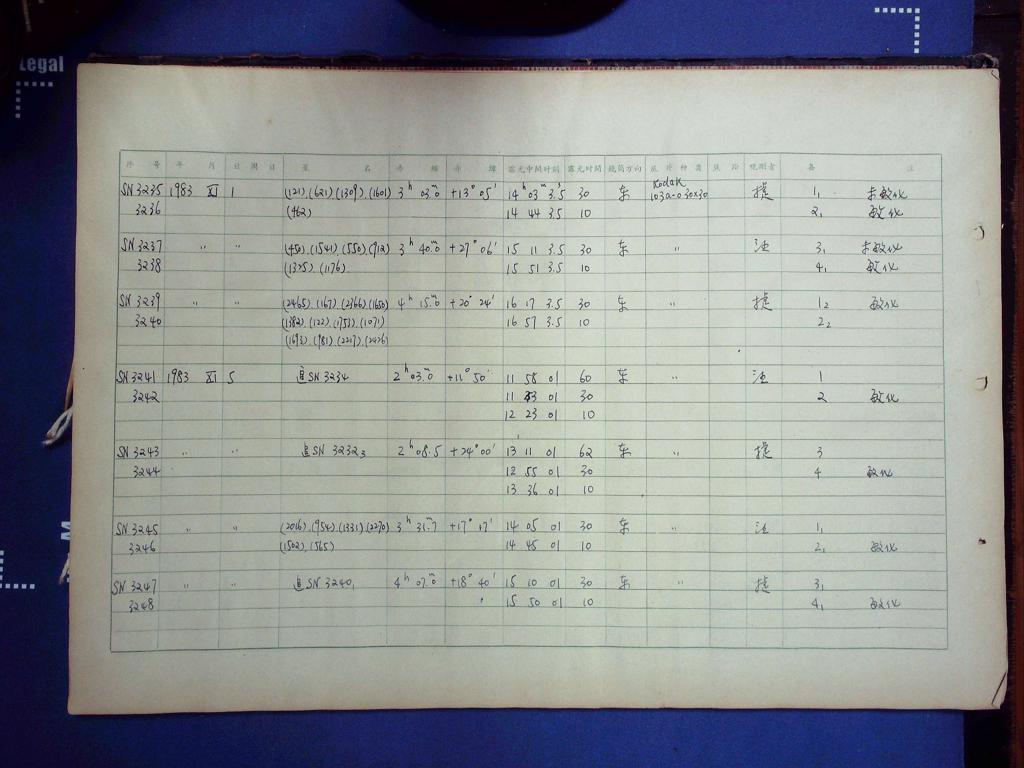 Legal
序 号 年 月 日 期 日 星 名 赤 经 赤 纬 露光中间时刻 露光时间 镜筒方向 底 片 种 类 观测者 备 注
SN 3235 1983 XI 1 (121).(621).(1309).(1601) 3h 03.m0 +13° 05' 14h 03m 3.s5 30 东 Kodak 103a-0 30x30 捷 1, 未敏化
3236 (462) 14 44 3.5 10 2, 敏化
SN 3237 " " (450).(1541).(550).(912) 3h 40.m0 +27° 06' 15 11 3.5 30 东 " 3, 未敏化
3238 (1325).(1176) 15 51 3.5 10 4, 敏化
SN 3239 " " (2465).(167).(2366).(1650) 4h 15.m0 +20° 24' 16 17 3.5 30 东 " 捷 12 敏化
3240 (1382).(122).(1753).(1071) 16 57 3.5 10 22
(1693).(981).(2217).(2426)
SN 3241 1983 XI 5 追SN 3234 2h 03.m0 +11° 50' 11 58 01 60 东 " 1
3242 11 01 30 2 敏化
12 23 01 10
SN 3243 " " 追SN 32323 2h 08.5 +24° 00' 13 11 01 62 东 " 捷 3
3244 12 55 01 30 4 敏化
13 36 01 10
SN 3245 " " (2016).(954).(1331).(2270) 3h 31.m7 +17° 17' 14 05 01 30 东 " 1,
3246 (1502).(565) 14 45 01 10 2, 敏化
SN 3247 " " 追SN 3240, 4h 07.m0 +18° 40' 15 10 01 30 东 " 捷 3,
3248 15 50 01 10 4, 敏化